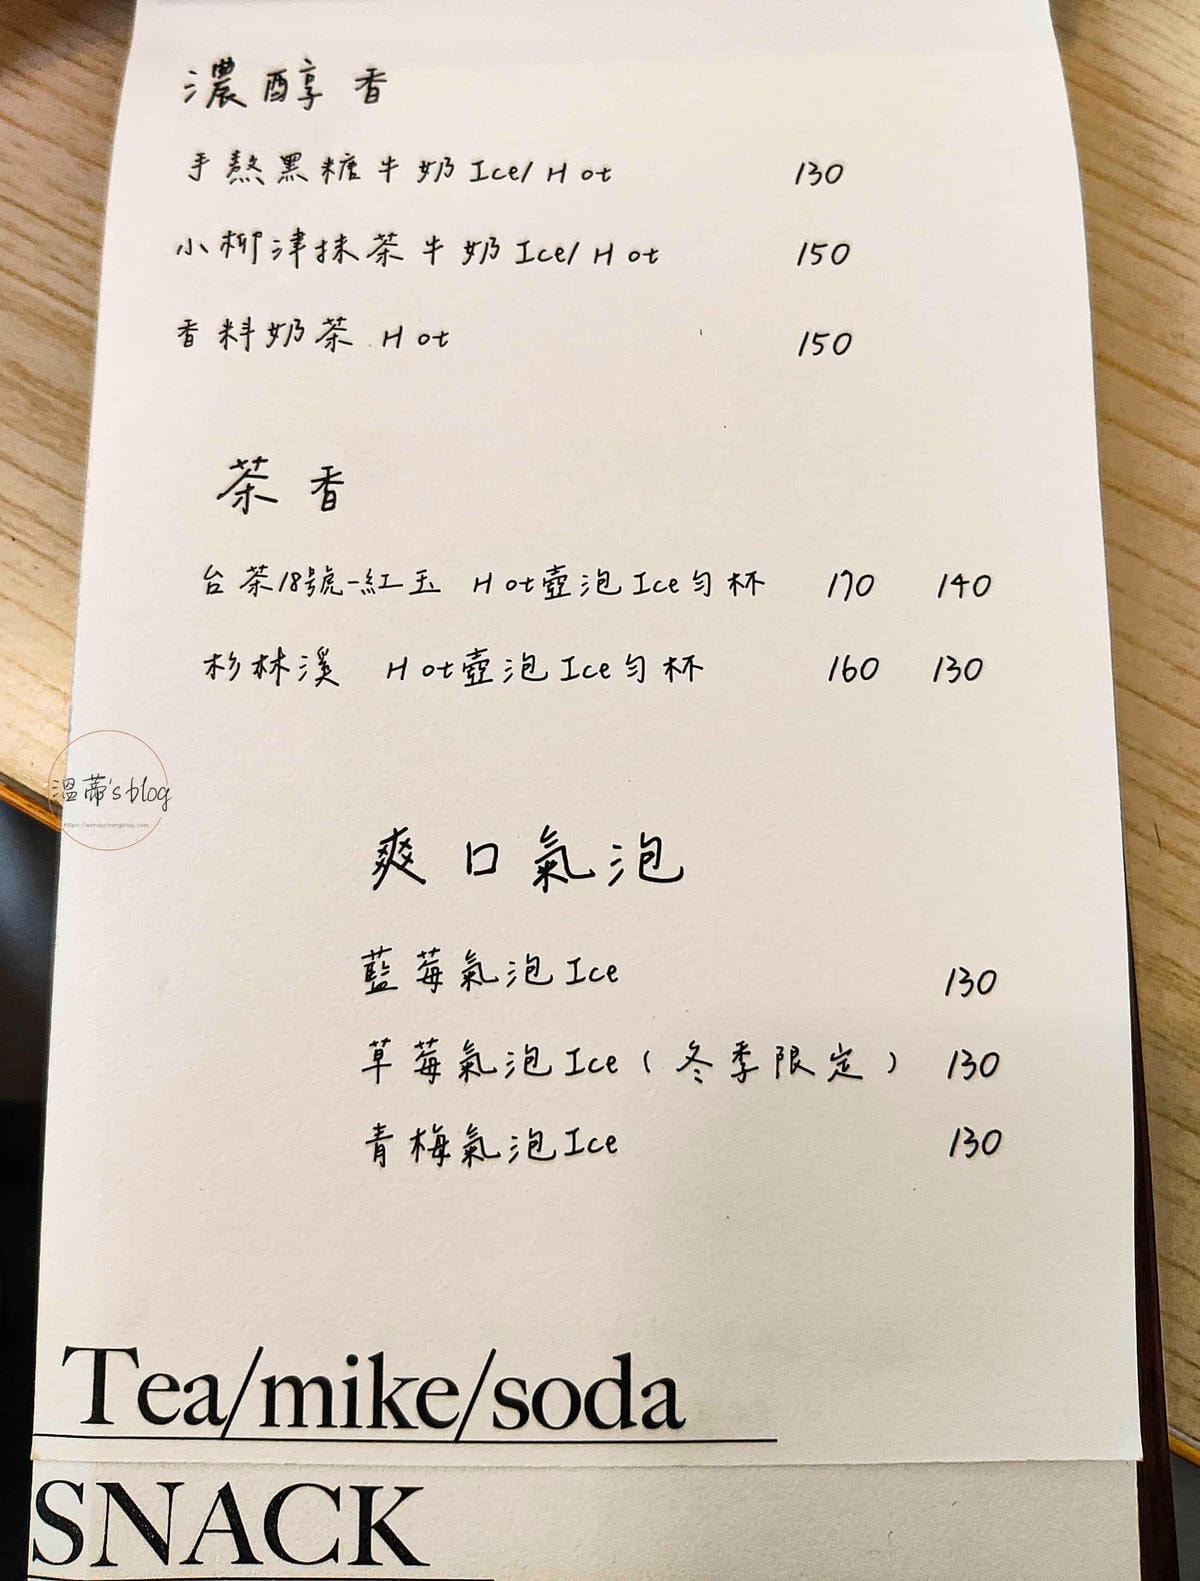 濃醇香
手熬黑糖牛奶Ice/Hot 130
小柳津抹茶牛奶Ice/Hot 150
香料奶茶 Hot 150
茶香
台茶18號-紅玉 Hot壺泡Ice勻杯 170 140
杉林溪 Hot壺泡Ice勻杯 160 130
溫蒂's blog
https://wendychangblog.com
爽口氣泡
藍莓氣泡Ice 130
草莓氣泡Ice(冬季限定) 130
青梅氣泡Ice 130
Tea/mike/soda
SNACK